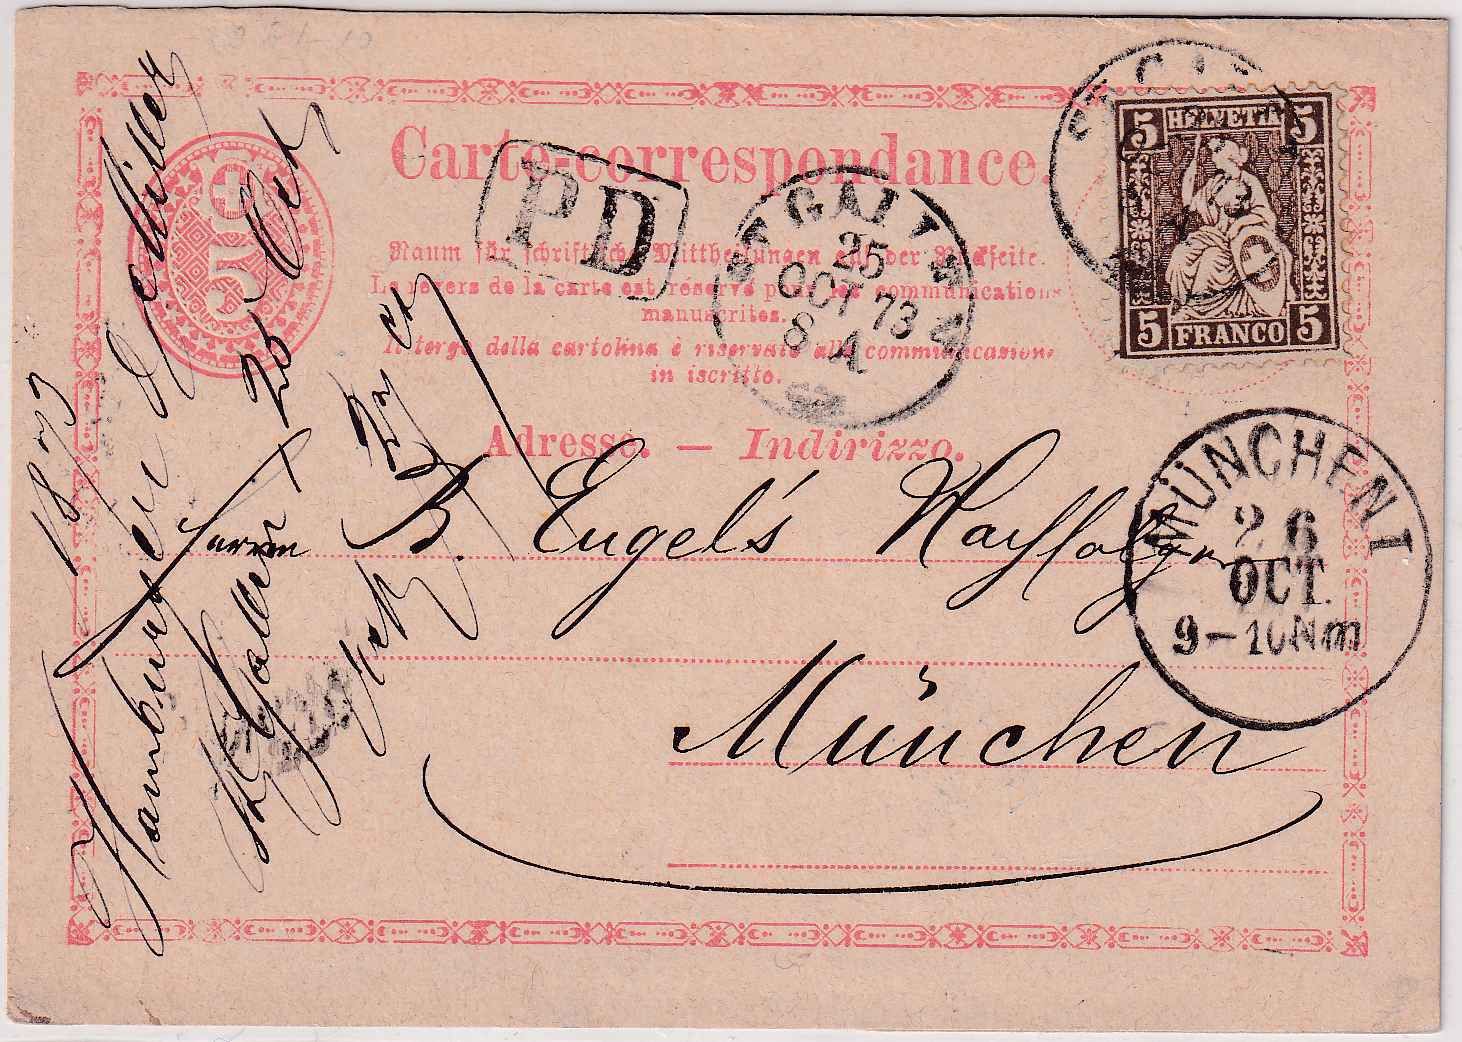 Carte-correspondance.
5
Raum für schriftliche Mittheilungen auf der Rückseite.
Le revers de la carte est réservé pour les communications
manuscrites.
A tergo della cartolina è riservato alle communicazioni
in iscritto.
Adresse. — Indirizzo.
Herrn B. Engel's Nachfolger
München
PD
ST GALLEN
25
OCT 73
8 A
5 HELVETIA 5
5 FRANCO 5
MÜNCHEN I
26
OCT.
9-10 Nm
1873
Hamburger &
St Gallen 25 Oct